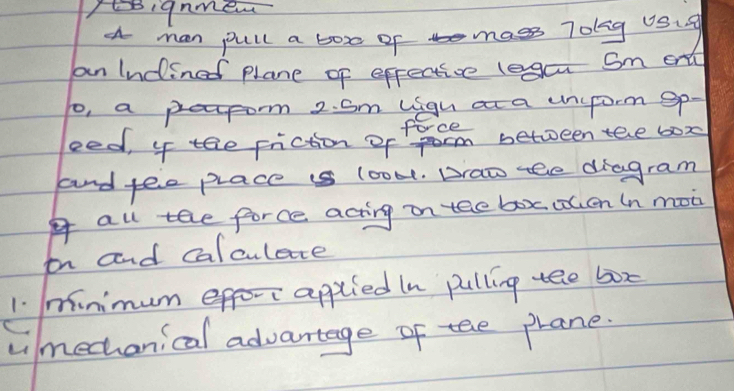 Assignment
A man pull a box of mass 70kg using
an Inclined plane of effective length 5m onto
a platform 2.5m high at a uniform sp-
eed, if the friction of force between the box
and the place is 100N. Draw the diagram
of all the force acting on the box when in moti
on and calculate
1. minimum effort applied in pulling the box
ii mechanical advantage of the plane.